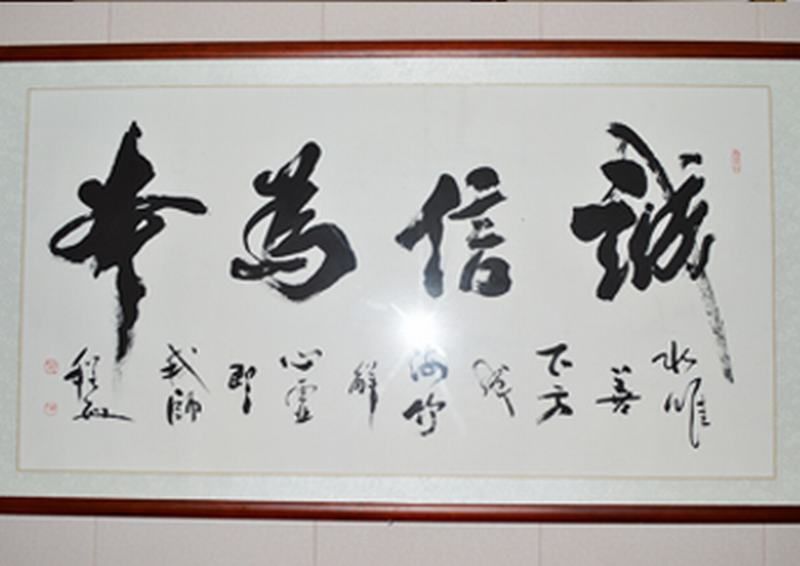 誠信為本
水唯善下方成海竹解心虛即我師